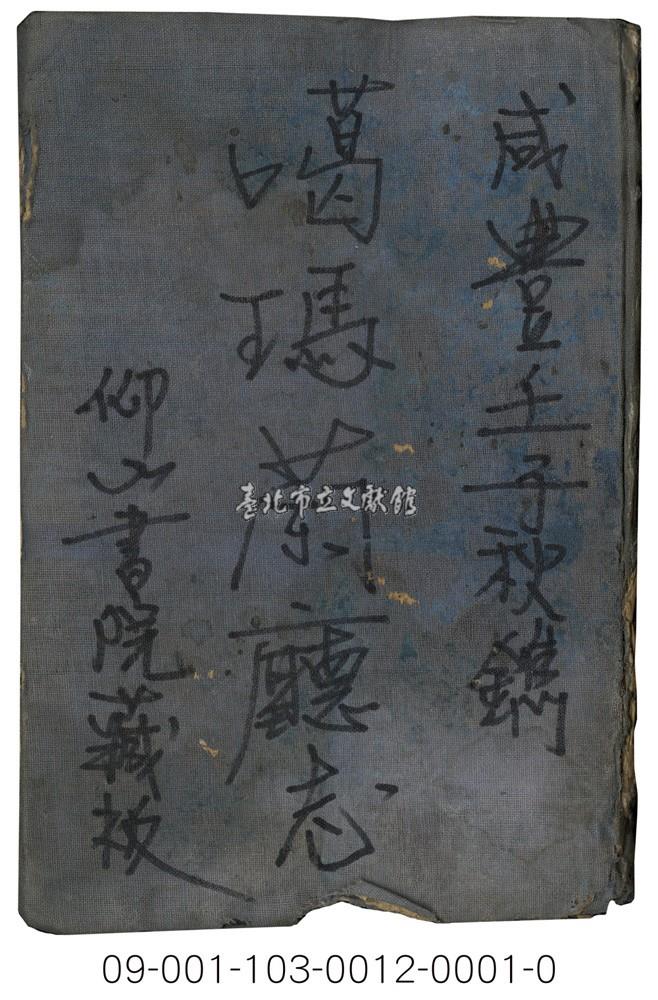 咸豐壬子秋鐫
噶瑪蘭廳志
仰山書院藏板
臺北市立文獻館
09-001-103-0012-0001-0